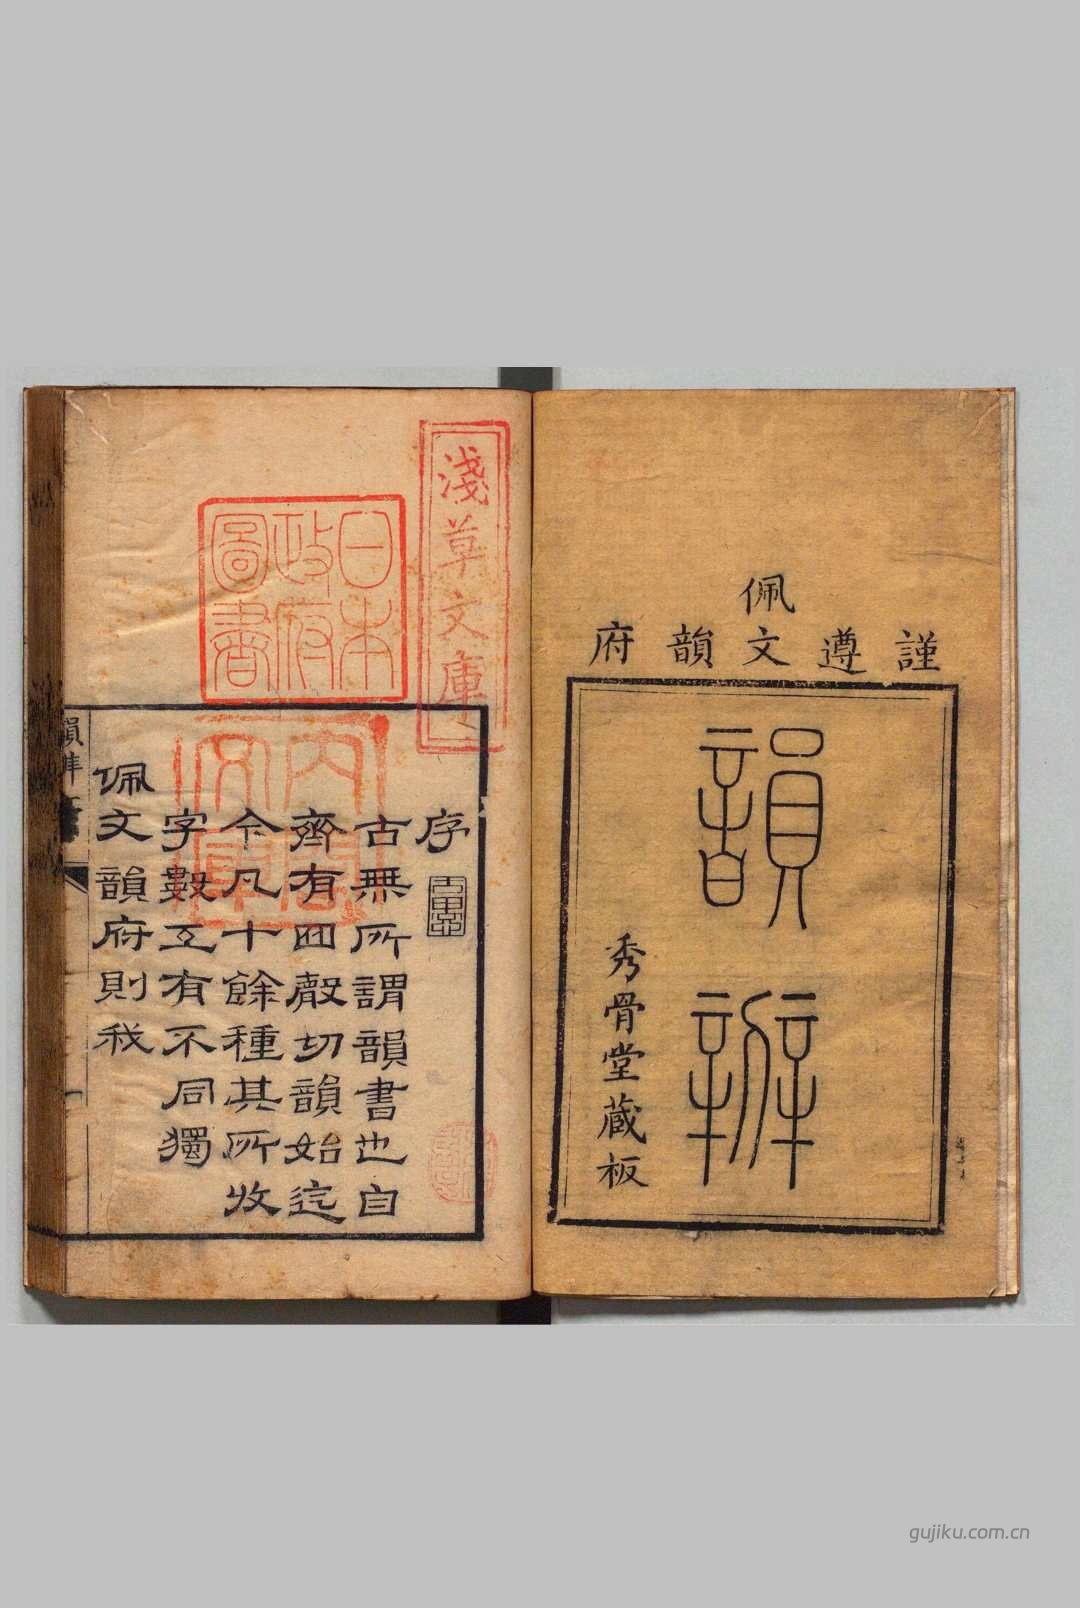 謹遵
佩文韻府
韻辨
秀骨堂藏板
淺草文庫
日本
政府
圖書
內閣
文庫
序
古無所謂韻書也自
齊有四聲切韻始迄
今凡十餘種其所收
字數互有不同獨
佩文韻府則我
gujiku.com.cn